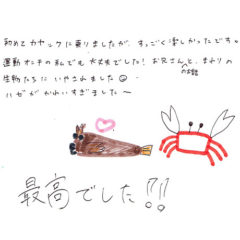 初めてカヤックに乗りましたが、すっごく楽しかったです。
運動オンチの私でも大丈夫でした！お兄さんのお話と、まわりの
生物たちにいやされました☺
ハゼがかわいすぎました〜
最高でした！！